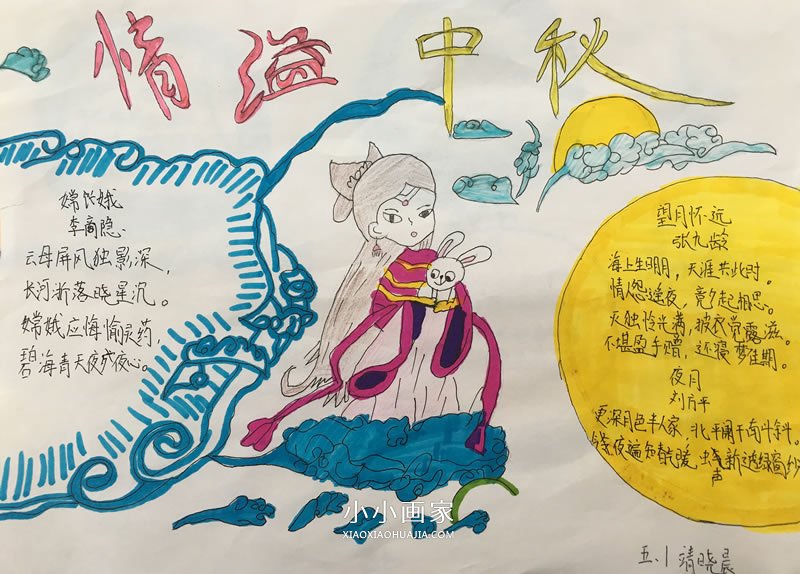 情溢中秋
嫦长娥
李商隐
云母屏风独影深，
长河渐落晓星沉。
嫦娥应悔愉灵药，
碧海青天夜夜心。
望月怀远
张九龄
海上生明月，天涯共此时。
情人怨遥夜，竟夕起相思。
灭独怜光满，披衣觉露滋。
不堪盈手赠，还寝梦佳期。
夜月
刘方平
更深月色半人家，北斗阑干南斗斜。
今夜偏知春暖，虫声新透绿窗纱
小小画家
XIAOXIAOHUAJIA.COM
五.1 靖晓晨